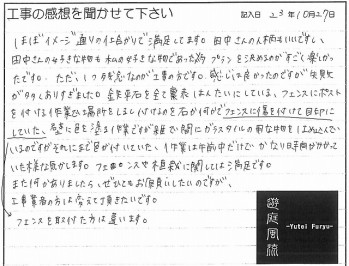 工事の感想を聞かせて下さい 記入日 23年10月27日
ほぼイメージ通りの仕上がりで満足してます。田中さんの人柄はいいですし、
田中さんの好きな物も私の好きな物であった為プランを決めるのがすごく楽しかっ
たです。ただ、1つ残念なのが工事の方です。感じは良かったのですが失敗
が多々ありすぎました。全て業者はんたいにしている、フェンスにポスト
を付ける作業で場所をしるし付けるのを石か何かでフェンスに傷を付けて目印に
していた、壁に目を塗る作業ですが雑で間にガラスタイルの様な物をはめ込んで
いるのですがそれにまで目が付いていた、作業は午前中だけでかなり日時がかかって
いた様な気がします。フェンスや植栽に関しては満足です。
また何かありましたら、ぜひともお願いしたいのですが、
工事業者の方は変えて頂きたいです。
フェンスを取付た方は違います。
遊庭風流
-Yutei Furyu-